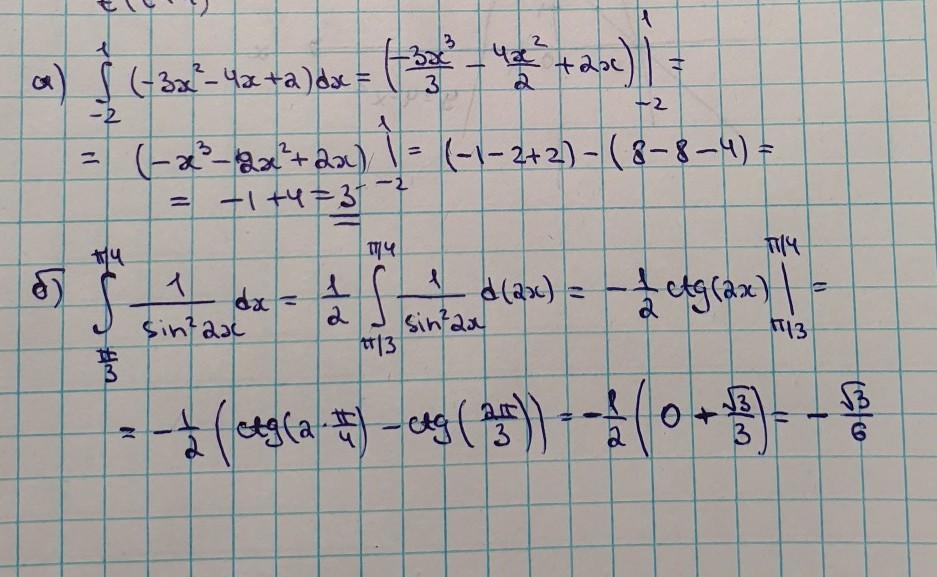 а) ∫₋₂¹ (-3x² - 4x + 2)dx = (-3x³/3 - 4x²/2 + 2x) |₋₂¹ =
= (-x³ - 2x² + 2x) |₋₂¹ = (-1 - 2 + 2) - (8 - 8 - 4) =
= -1 + 4 = 3
б) ∫_{π/3}^{π/4} 1/sin²2x dx = 1/2 ∫_{π/3}^{π/4} 1/sin²2x d(2x) = -1/2 ctg(2x) |_{π/3}^{π/4} =
= -1/2 (ctg(2·π/4) - ctg(2π/3)) = -1/2 (0 + √3/3) = -√3/6